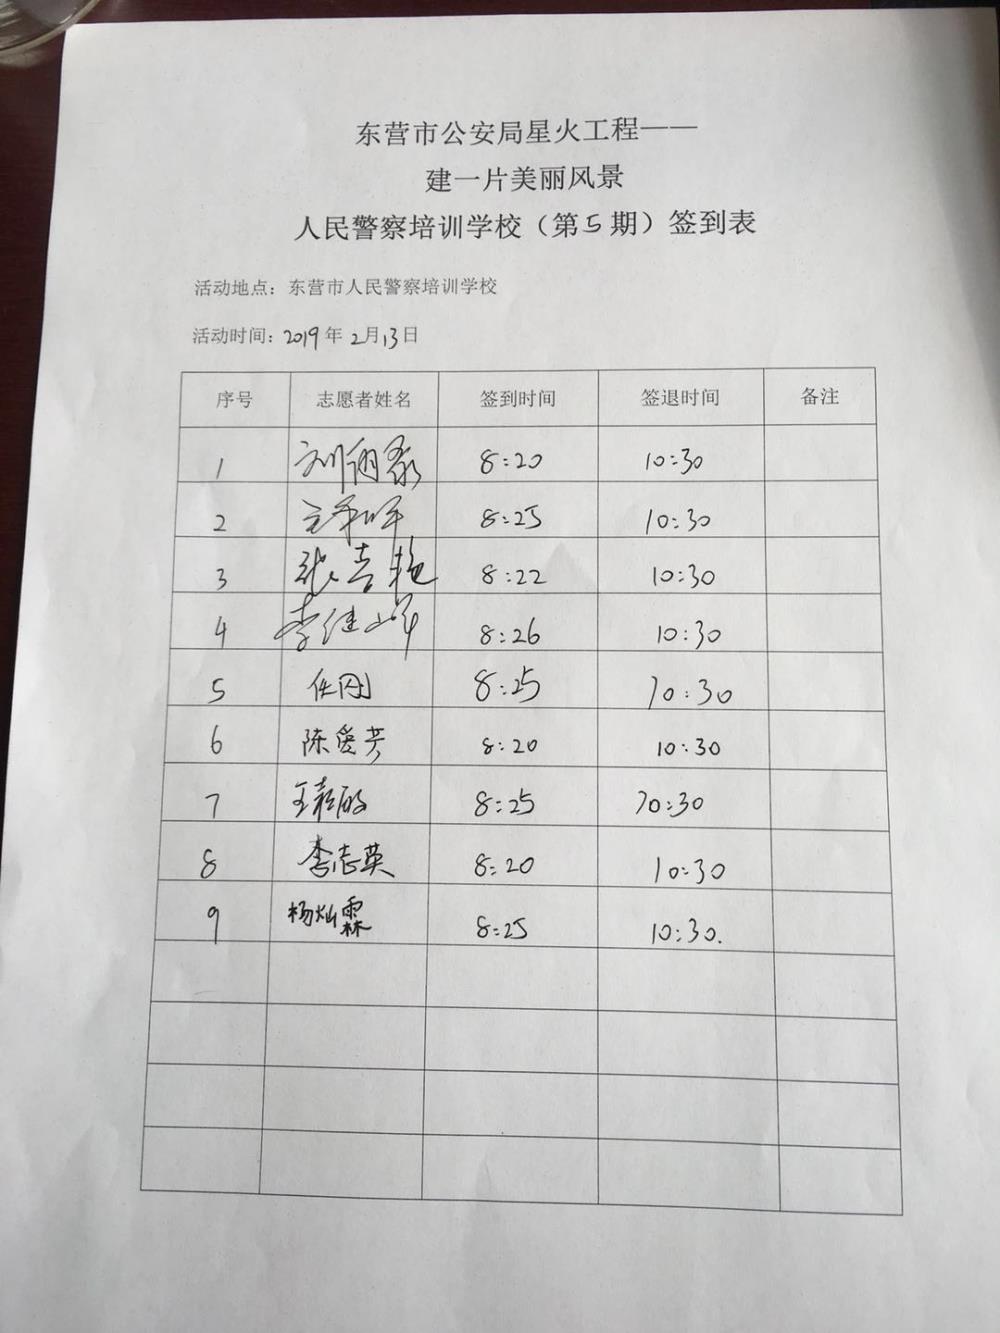 东营市公安局星火工程——
建一片美丽风景
人民警察培训学校（第5期）签到表
活动地点：东营市人民警察培训学校
活动时间：2019年2月13日
序号 志愿者姓名 签到时间 签退时间 备注
1 8:20 10:30
2 8:25 10:30
3 张吉艳 8:22 10:30
4 李继山峰 8:26 10:30
5 任刚 8:25 10:30
6 陈爱芳 8:20 10:30
7 8:25 10:30
8 李志英 8:20 10:30
9 杨灿霖 8:25 10:30.